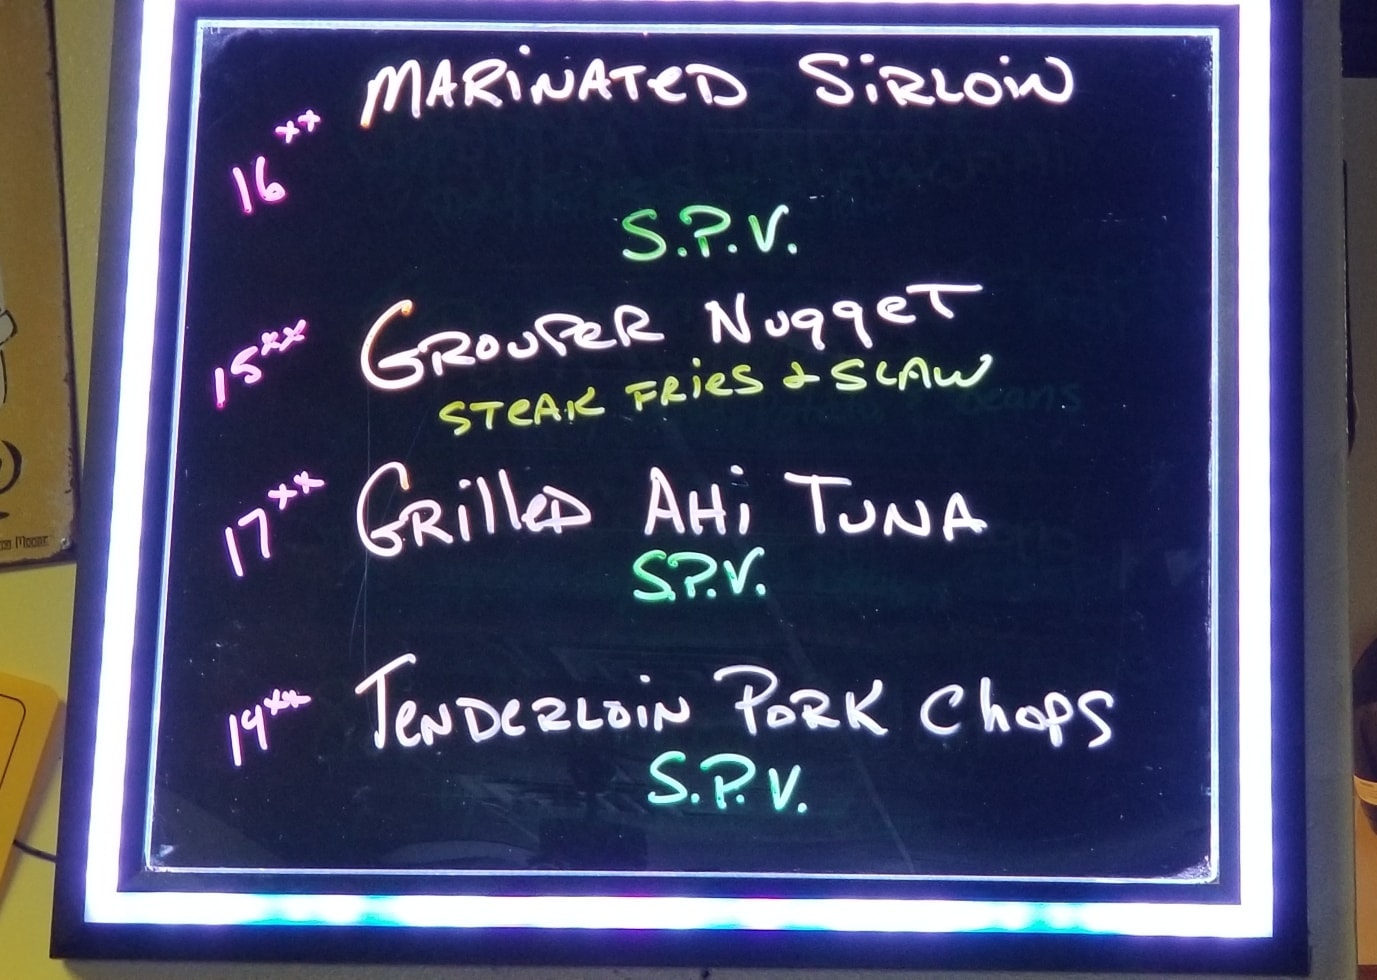 MARINATED SIRLOIN
16xx
S.P.V.
GROUPER NUGGET
15xx
STEAK FRIES & SLAW
17xx GRILLED AHI TUNA
S.P.V.
19xx TENDERLOIN PORK CHOPS
S.P.V.